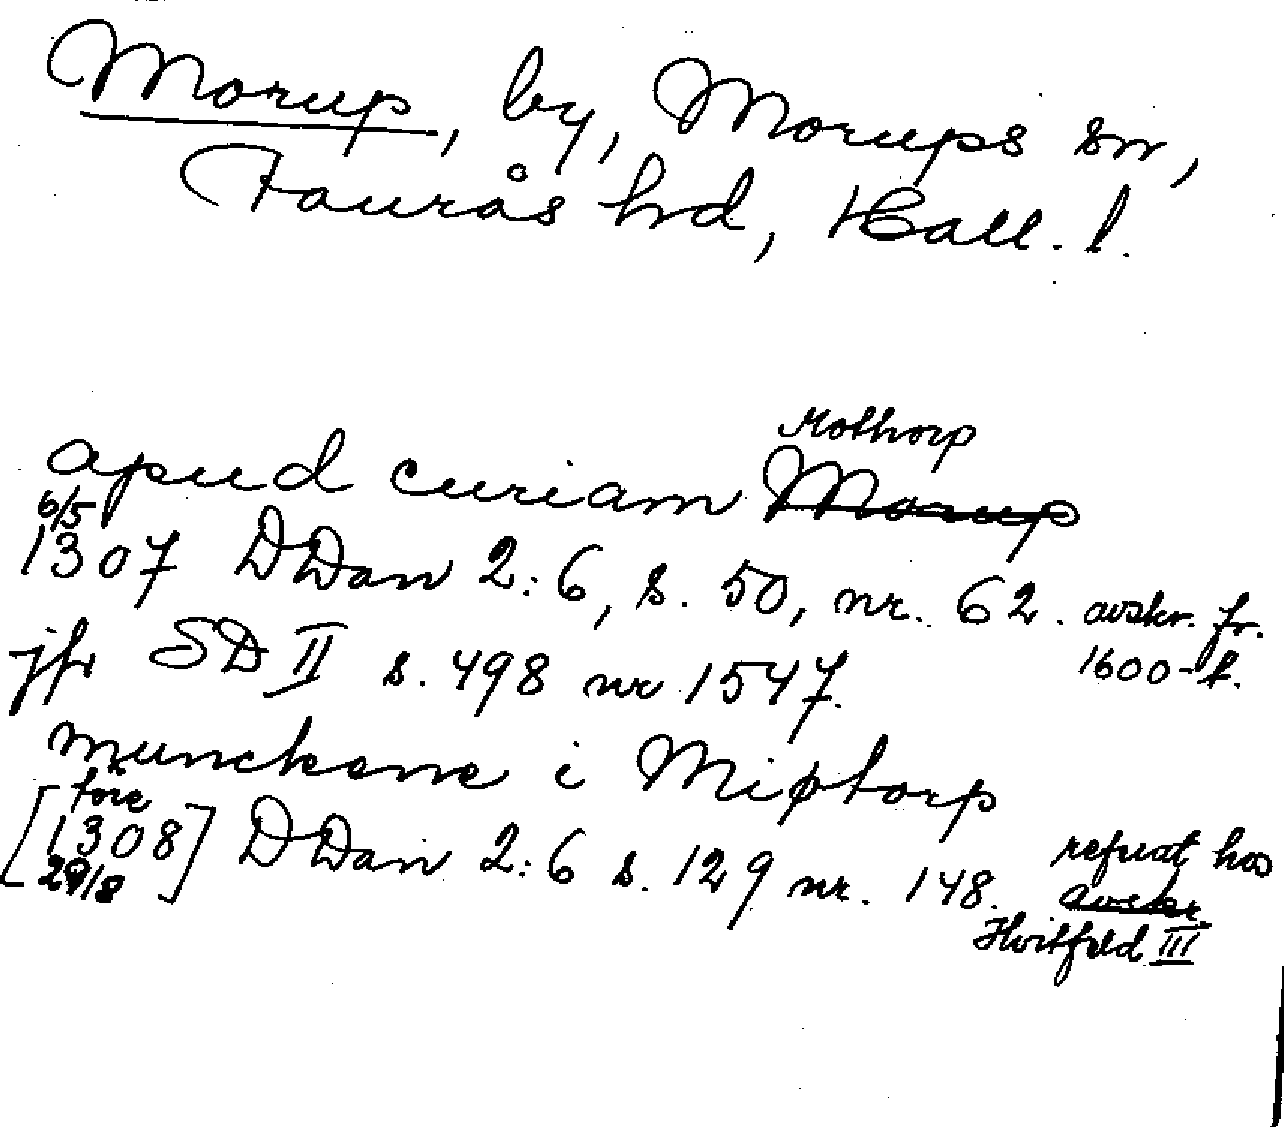 Morup, by, Morups sn,
Faurås hd, Hall. l.
Mothorp
apud curiam Morup
6/5
1307 DDan 2:6, s. 50, nr. 62. avskr. fr.
1600-t.
jfr SD II s. 498 nr 1547.
munckene i Miptorp
före
[1308] DDan 2:6 s. 129 nr. 148. referat hos
29/8 avskr.
Hvitfeld III